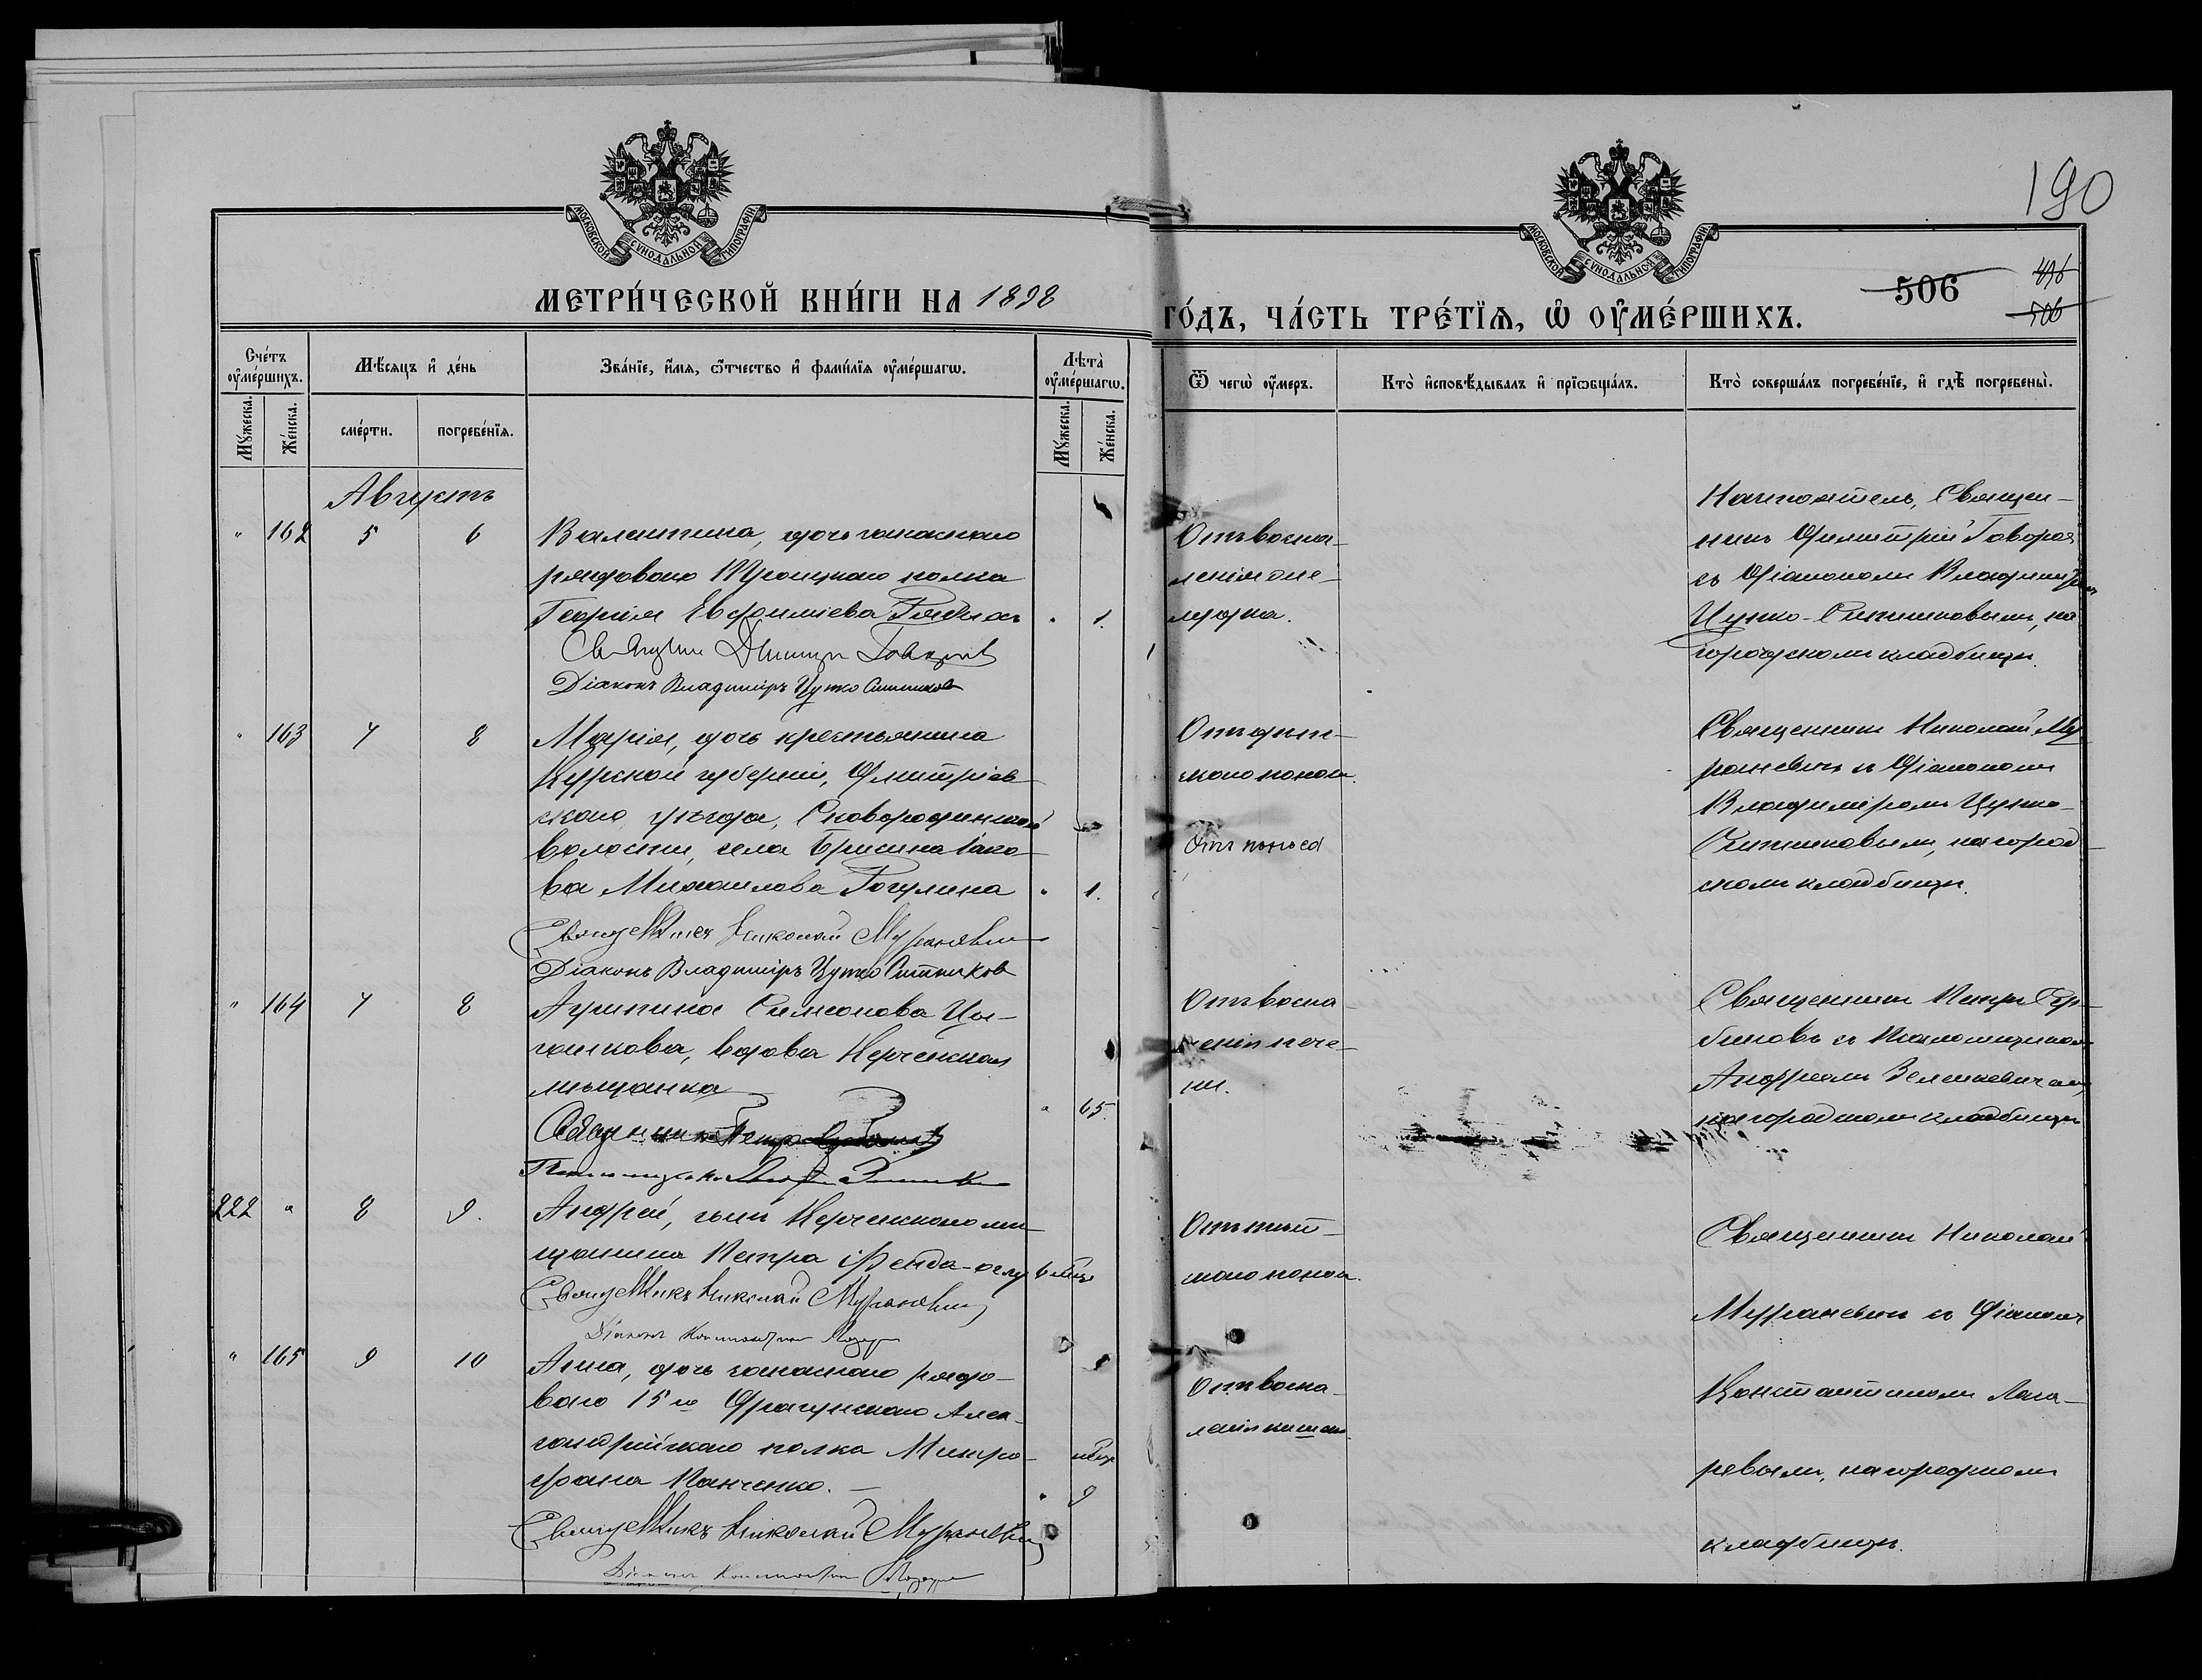 190
МОСКОВСКОЙ СѴНОДАЛЬНОЙ ТИПОГРАФІИ
МОСКОВСКОЙ СѴНОДАЛЬНОЙ ТИПОГРАФІИ
МЕТРИ́ЧЕСКОЙ КНИ́ГИ НА 1898
ГО́ДЪ, ЧА́СТЬ ТРЕ́ТЇѦ, Ѡ ОУМЕ́РШИХЪ.
506
496
506
Сче́тъ оуме́ршихъ.
Му́жеска.
Же́нска.
Мѣ́сяцъ и де́нь
сме́рти.
погребе́нїѧ.
Зва́нїе, и́мѧ, ѻ́тчество и фами́лїѧ оуме́ршагѡ.
Лѣта̀ оуме́ршагѡ.
Му́жеска.
Же́нска.
Ѿ чегѡ̀ оу́меръ.
Кто̀ и҆сповѣ́дывалъ и҆ прїѡбща́лъ.
Кто̀ соверша́лъ погребе́нїе, и҆ гдѣ̀ погребены̀.
Августъ
" 162 5 6
Валентина, дочь запаснаго
рядоваго Троицкаго полка
Георгія Евфиміева
" 1.
Діаконъ Владиміръ Цупко Ситников
Отъ воспа-
ленія
Настоятель, Священ-
никъ Димитрій Говоров
съ Діакономъ Владиміром
Цупко-Ситниковымъ, на
городскомъ кладбищѣ.
" 163 7 8
Марія, дочь крестьянина
Курской губерніи, Дмитріев-
скаго уѣзда, Сковородинской
волости, села Іако-
ва Михаилова
" 1.
Священникъ Николай Мураневич
Діаконъ Владиміръ Цупко Ситников
Отъ дит-
скаго поноса.
Священникъ Николай Му
раневичъ съ Діакономъ
Владиміромъ Цупко-
Ситниковымъ, на город-
скомъ кладбищѣ.
" 164 7 8
Агрипина Симонова
вдова Нерченская
мѣщанка
" 65.
Отъ воспа-
ленія пече-
ни.
Священникъ Петръ
съ Псаломщикомъ
Андреемъ Зеленкевичемъ,
на городскомъ кладбищѣ
222 " 8 9.
Андрей, сынъ Нерченскаго мѣ-
щанина Петра
6 мѣс.
Священникъ Николай Мураневич
Діаконъ Константинъ Лазарев
скаго поноса.
Священникъ Николай
Мураневичъ съ Діаконом
Константиномъ Лаза-
ревымъ, на городскомъ
кладбищѣ.
" 165 9 10
Анна, дочь запаснаго рядо-
ваго 15 го Драгунскаго Алек-
сандрійскаго полка Митро-
фана Панченко.
мѣс.
" 9
Священникъ Николай Мураневич
Діаконъ Константинъ Лазарев
Отъ воспа-
ленія кишекъ.